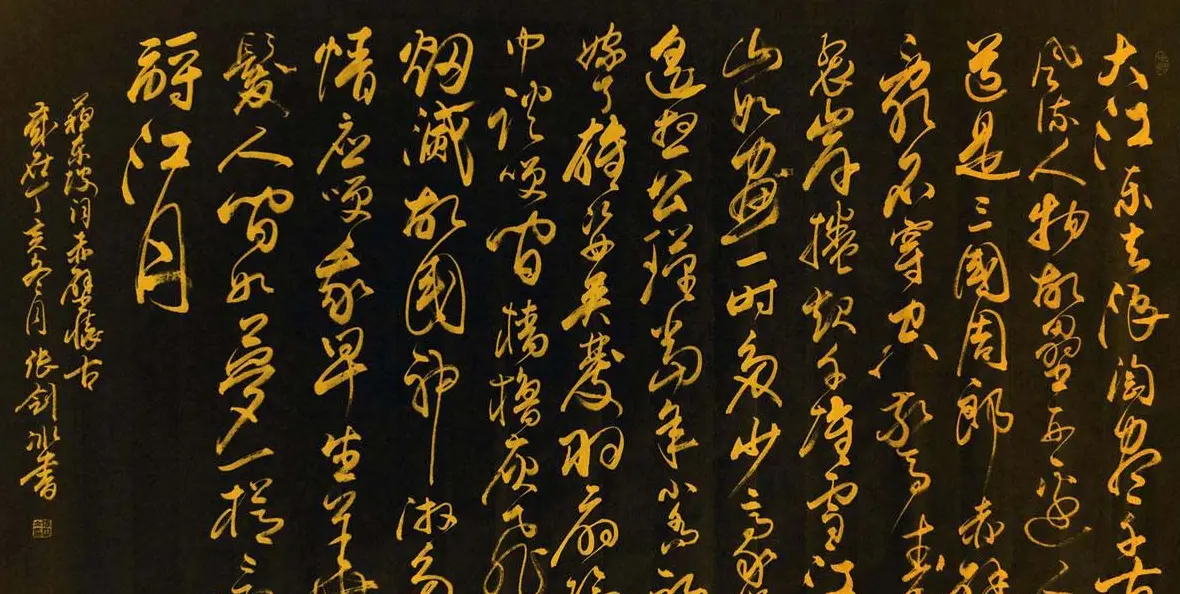 大江东去浪淘尽千古
风流人物故垒西边人
道是三國周郎赤壁
乱石穿空驚涛
裂岸捲起千堆雪江
山如画一时多少豪
遥想公瑾当年小乔初
嫁了雄姿英发羽扇纶
巾谈笑间樯橹灰飞
烟灭故國神游多
情应笑我早生华
髮人间如夢一樽
酹江月
蘇东坡词赤壁懷古
歲在丁亥冬月张剑冰书